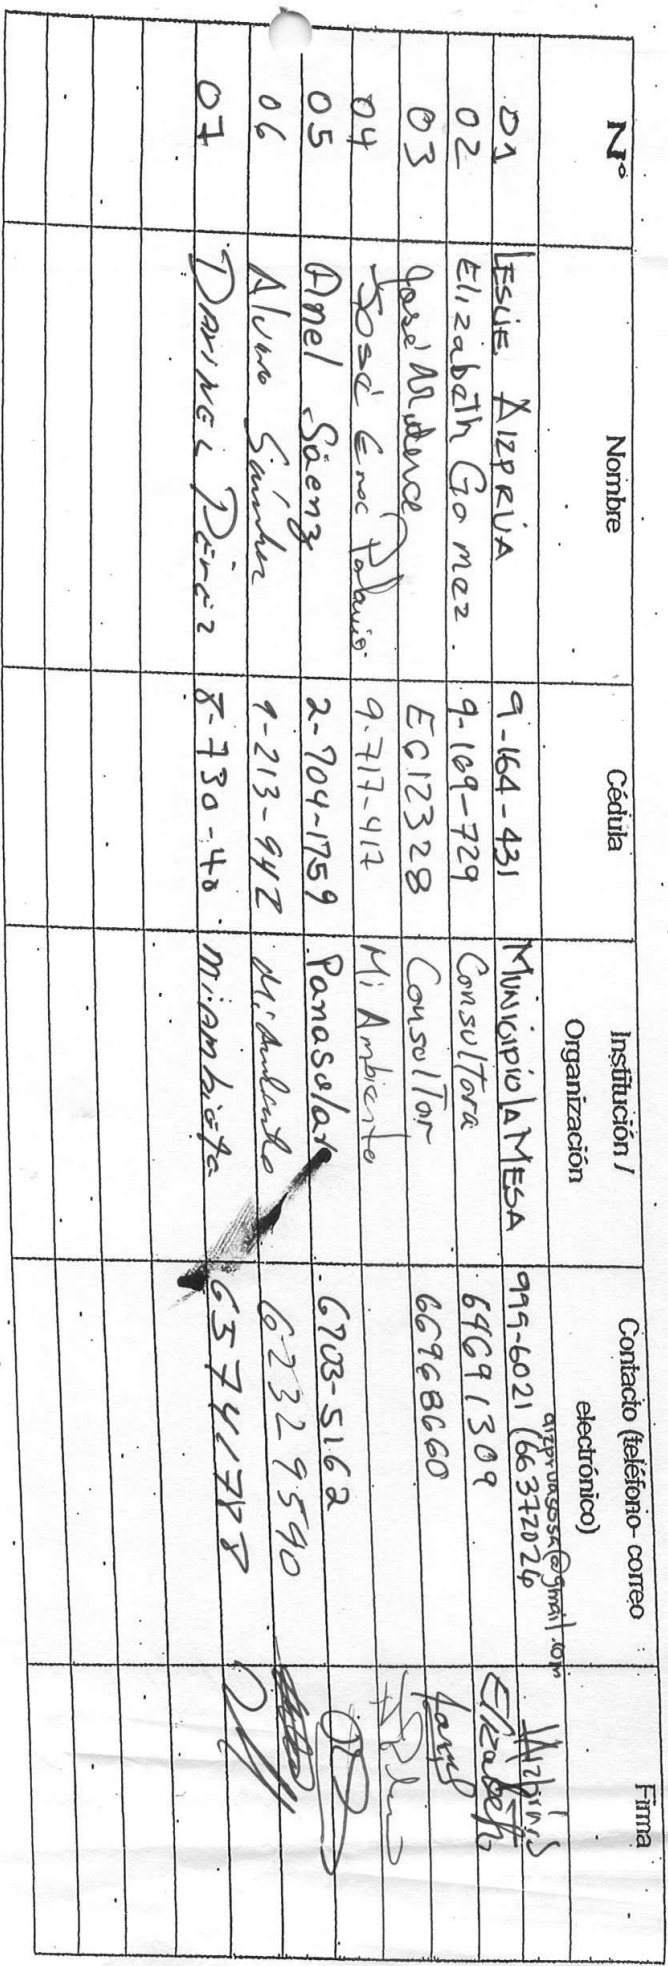 N° Nombre Cédula Institución / Organización Contacto (teléfono- correo electrónico) Firma
01 LESLIE AIZPRUA 9-164-431 MUNICIPIO LA MESA 999-6021 (66372026 aizpruasosa@gmail.com
02 Elizabeth Gomez. 9-169-729 Consultora 64691309 Elizabeth
03 José EC12328 Consultor 66968660
04 José Enoc Palacio 9-717-417 Mi Ambiente
05 Anel Sáenz 2-704-1759 Panasolar 6703-5162
06 Alvaro Sánchez 9-213-942 Mi Ambiente 62329590
07 8-730-40 Miambiente 65741788